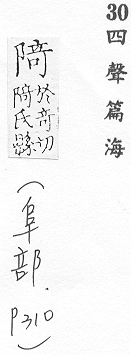 30 四聲篇海
陭 於奇切
陭氏縣
(阜部.P310)